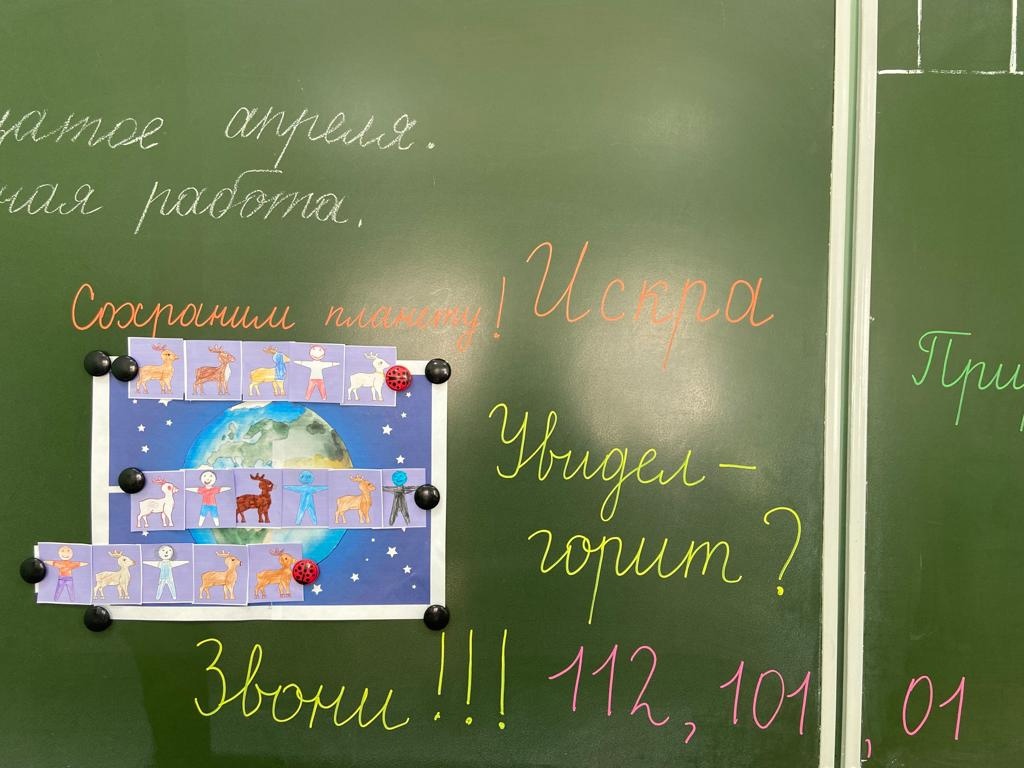 апреля.
работа.
Сохраним планету! Искра
Увидел –
горит?
Звони!!! 112, 101, 01
При